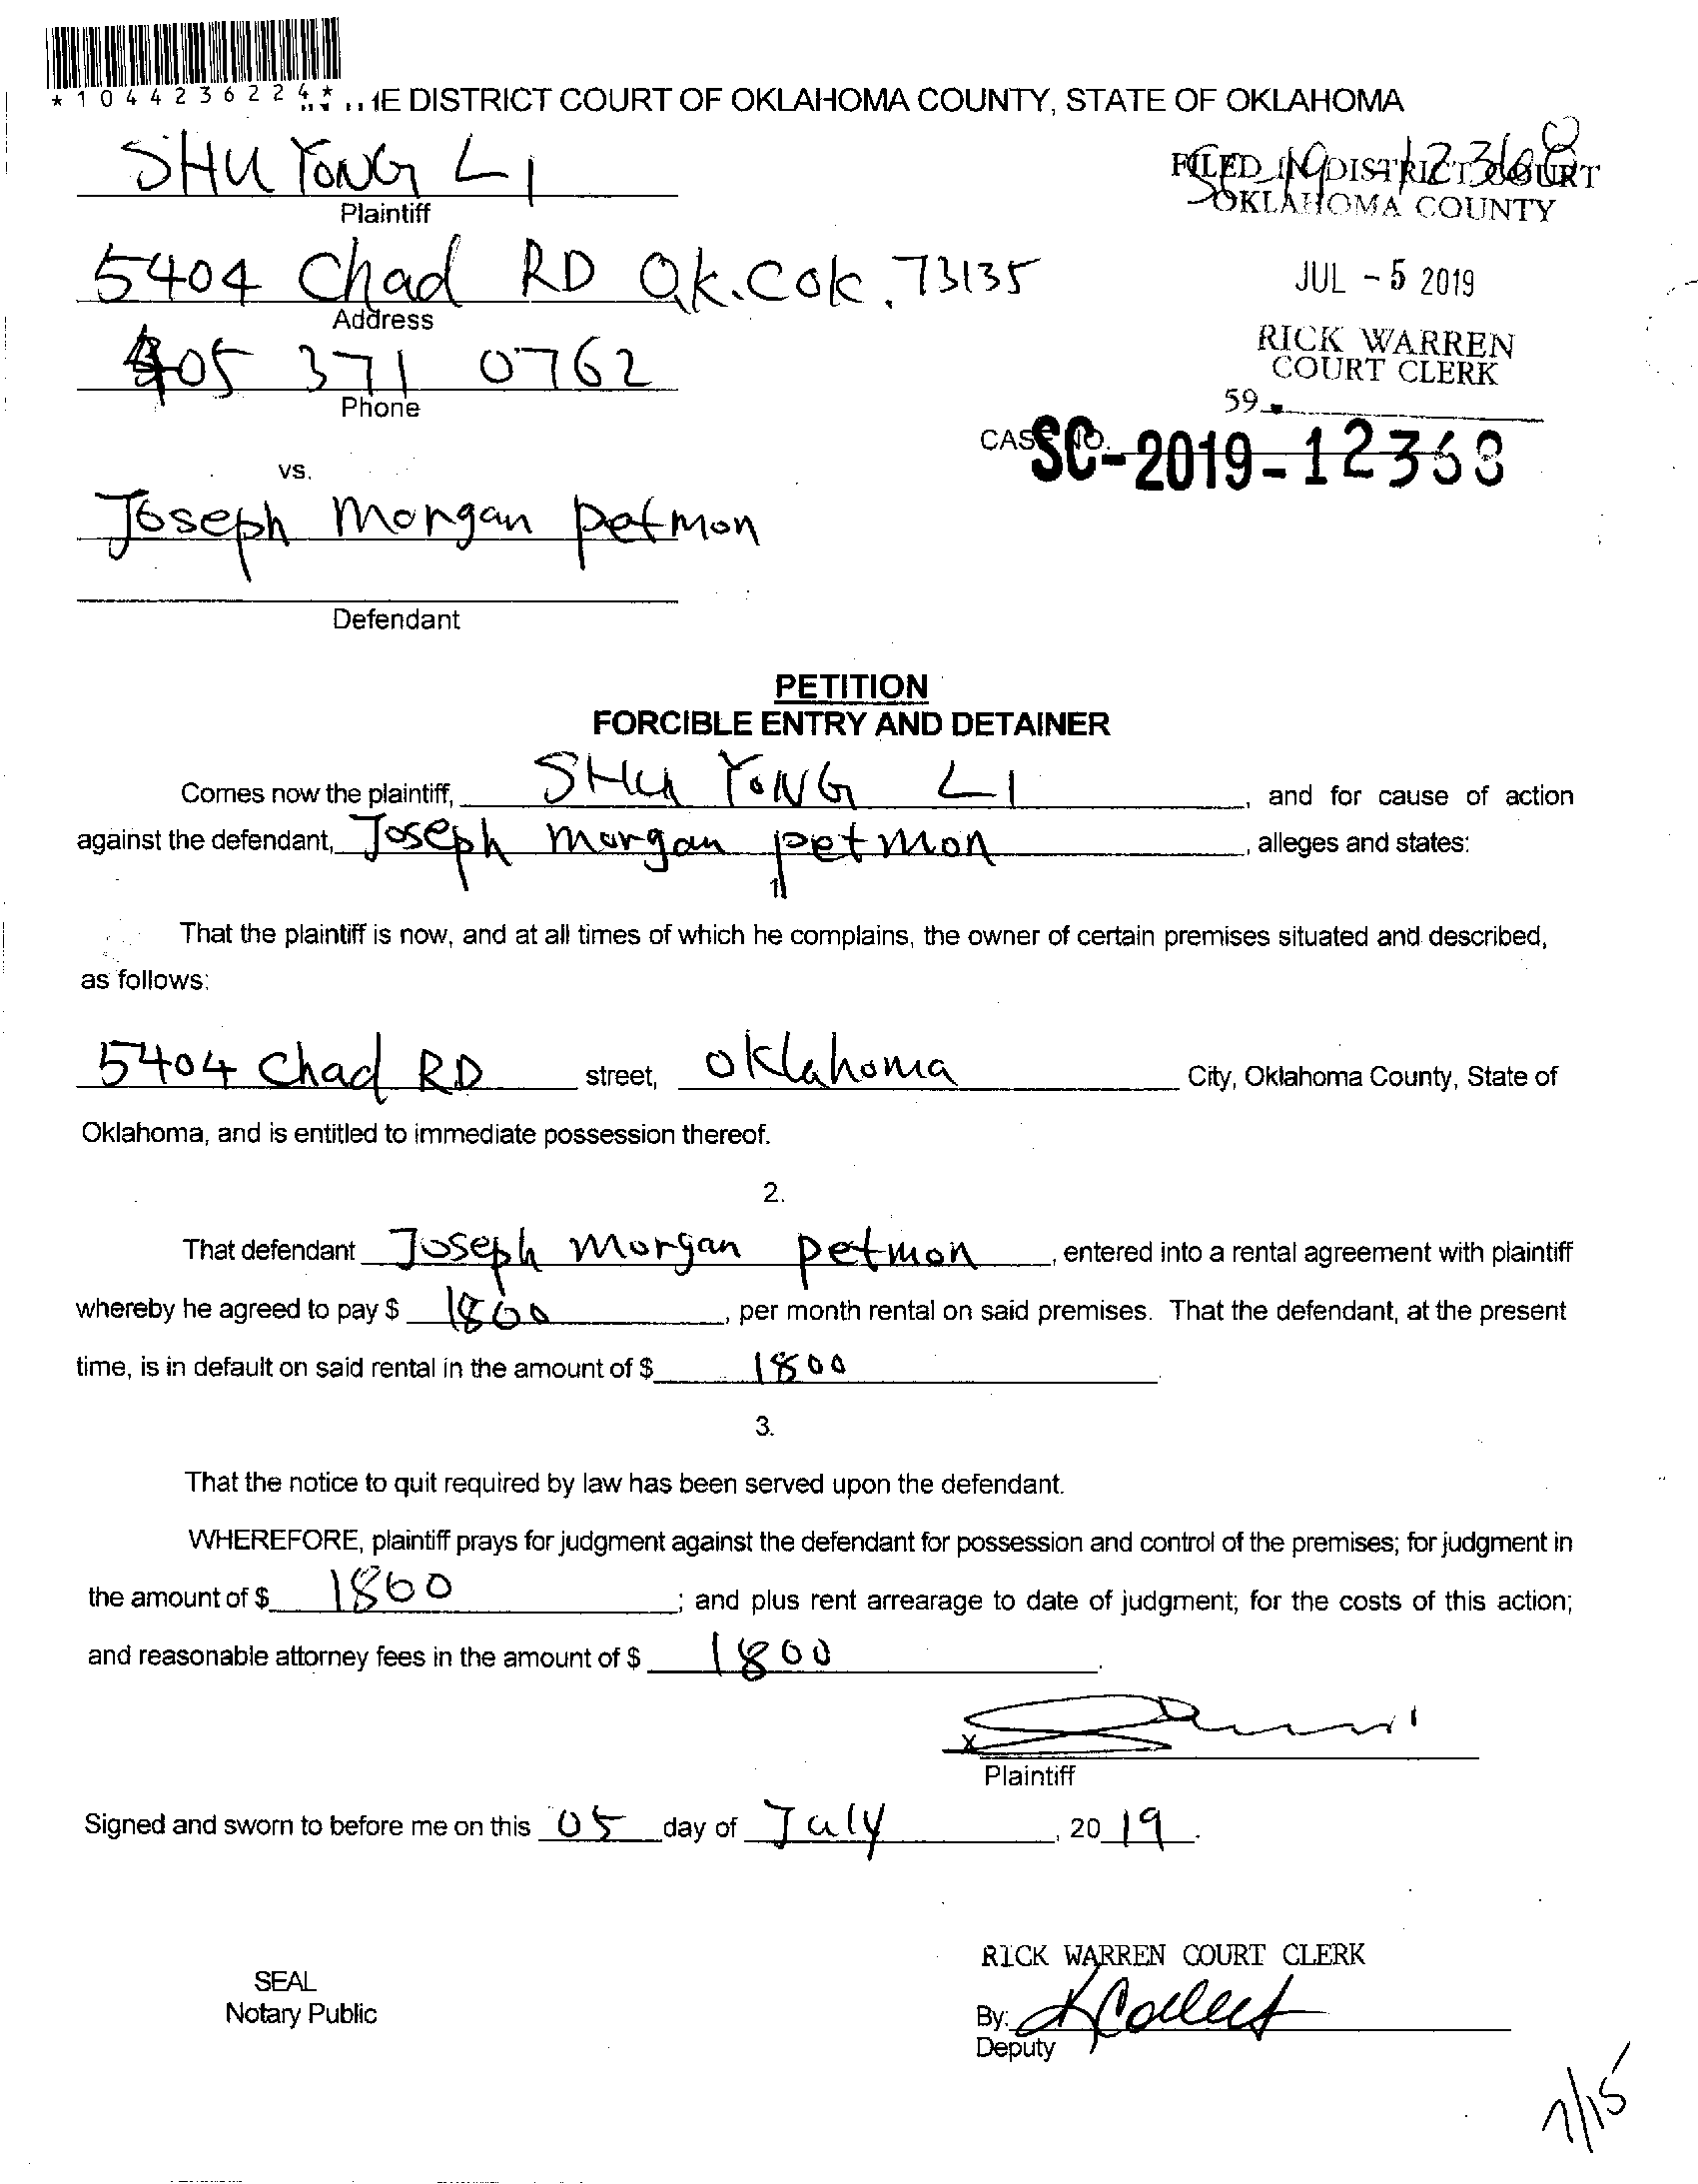 *1044236224*
HE DISTRICT COURT OF OKLAHOMA COUNTY, STATE OF OKLAHOMA
SHU YONG LI
Plaintiff
SC-19-12368
FILED IN DISTRICT COURT
OKLAHOMA COUNTY
5404 Chad RD Ok.Cok. 73135
Address
JUL - 5 2019
405 371 0762
Phone
RICK WARREN
COURT CLERK
59
CASE NO. SC-2019-12368
vs.
Joseph Morgan petmon
Defendant
PETITION
FORCIBLE ENTRY AND DETAINER
Comes now the plaintiff, SHU YONG LI, and for cause of action
against the defendant, Joseph morgan petmon, alleges and states:
1
That the plaintiff is now, and at all times of which he complains, the owner of certain premises situated and described,
as follows:
5404 Chad RD street, Oklahoma City, Oklahoma County, State of
Oklahoma, and is entitled to immediate possession thereof.
2.
That defendant Joseph Morgan petmon, entered into a rental agreement with plaintiff
whereby he agreed to pay $ 1800, per month rental on said premises. That the defendant, at the present
time, is in default on said rental in the amount of $ 1800.
3.
That the notice to quit required by law has been served upon the defendant.
WHEREFORE, plaintiff prays for judgment against the defendant for possession and control of the premises; for judgment in
the amount of $ 1800; and plus rent arrearage to date of judgment; for the costs of this action;
and reasonable attorney fees in the amount of $ 1800.
X
Plaintiff
Signed and sworn to before me on this 05 day of July, 2019.
RICK WARREN COURT CLERK
SEAL
Notary Public
By:
Deputy
7/15